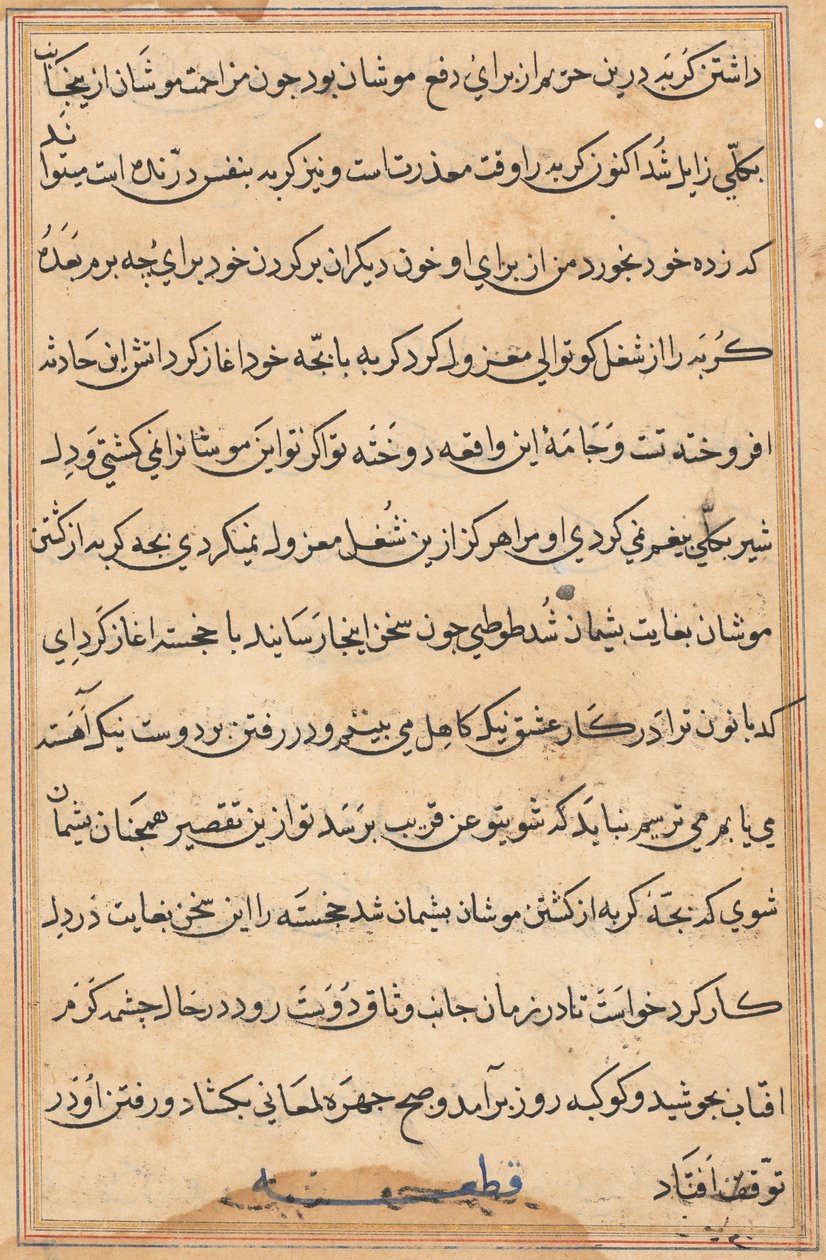 داشتن کربه درین حریم از برای دفع موشان بود جون مزاحمت موشان ازینجانب
بکلّی زایل شد اکنون کربه را وقت معذرتست و نیز کربه بنفس درّنده است میتواند
که زده خود بخورد من از برای او خون دیکران بر کردن خود برای چه برم بعده
کربه را از شغل کوتوالی معزول کرد کربه با بچّه خود اغاز کرد اتش این حادثه
افروخته تست و جامۀ این واقعه دوخته تو اکر تو این موشانرا نمی کشتی و دل
شیر بکلّی بیغم نمی کردی او مرا هرکز ازین شغل معزول نمیکردی بجه کربه از کشتن
موشان بغایت بشیمان شد طوطی جون سخن اینجا رسانید با خجسته اغاز کرد ای
کدبانو من ترا در کار عشق نیک کاهل می بینم و در رفتن بر دوست نیک آهسته
می یابم می ترسم نباید که شویتو عن قریب برسد تو ازین تقصیر همجنان بشیمان
شوی که بجّۀ کربه از کشتن موشان بشیمان شد خجسته را این سخن بغایت در دل
کار کرد خواست تا در زمان جانب وثاق دوست رود در حال جشمه کرم
افتاب بجوشید و کوکبه روز برآمد و صبح جهره لمعانی بکشاد و رفتن او در
توقف افتاد قطعه